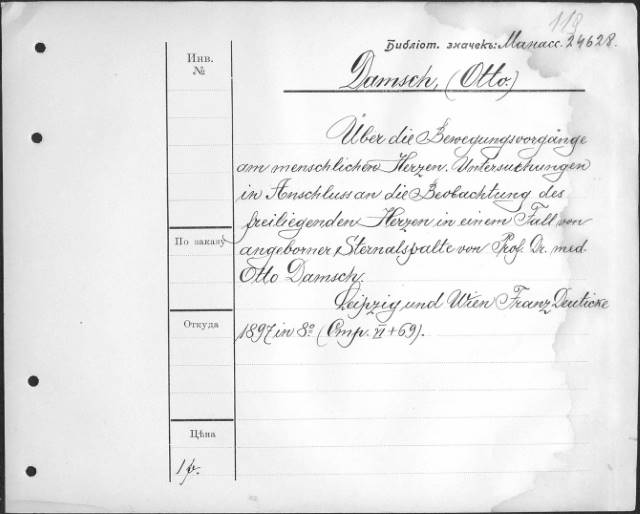 118
Библіот. значекъ: Манасс. 24628.
Инв.
№
Damsch, (Otto.)
Über die Bewegungsvorgänge
am menschlichen Herzen. Untersuchungen
in Anschluss an die Beobachtung des
freiliegenden Herzen in einem Fall von
По заказу
angeborner Sternalspalte von Prof. Dr. med.
Otto Damsch.
Leipzig und Wien Franz Deuticke
Откуда
1897 in 8º (Стр. VI + 69).
Цѣна
1 р.